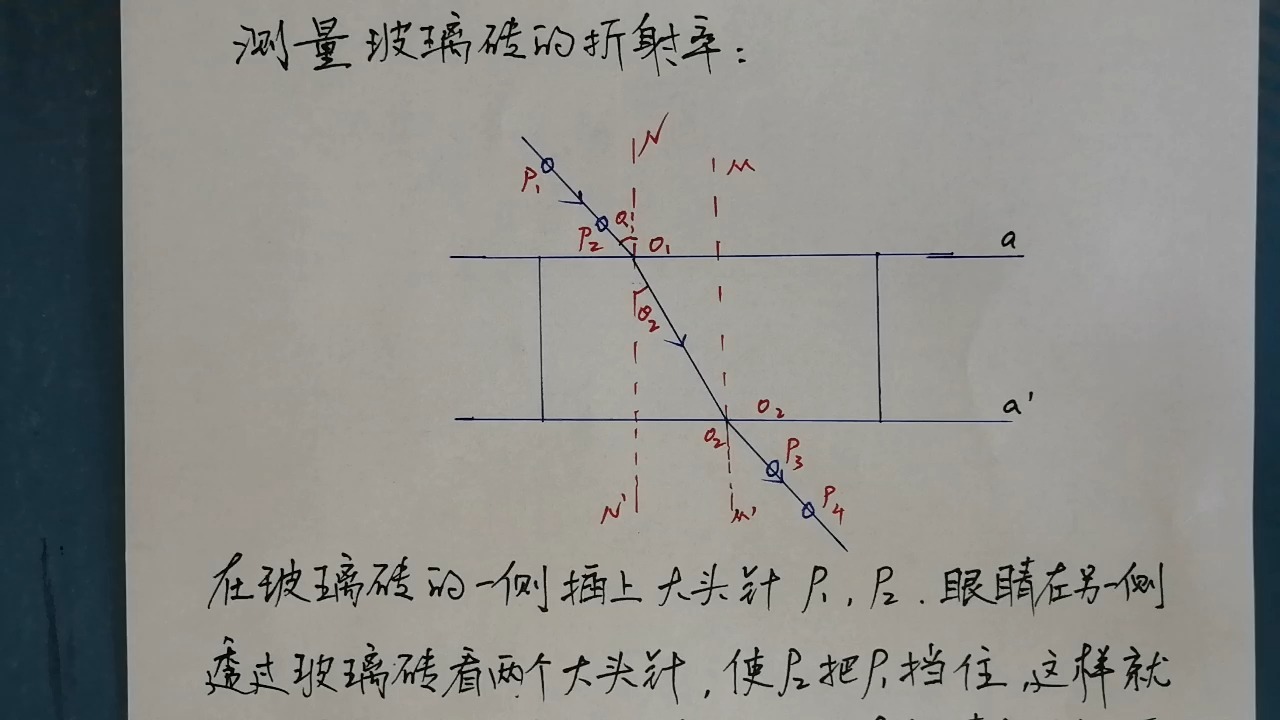 测量玻璃砖的折射率:
N
M
P₁
θ₁
P₂
O₁
a
θ₂
a'
O₂
θ₂
P₃
P₄
N'
M'
在玻璃砖的一侧插上大头针 P₁, P₂. 眼睛在另一侧
透过玻璃砖看两个大头针, 使P₂把P₁挡住,这样就